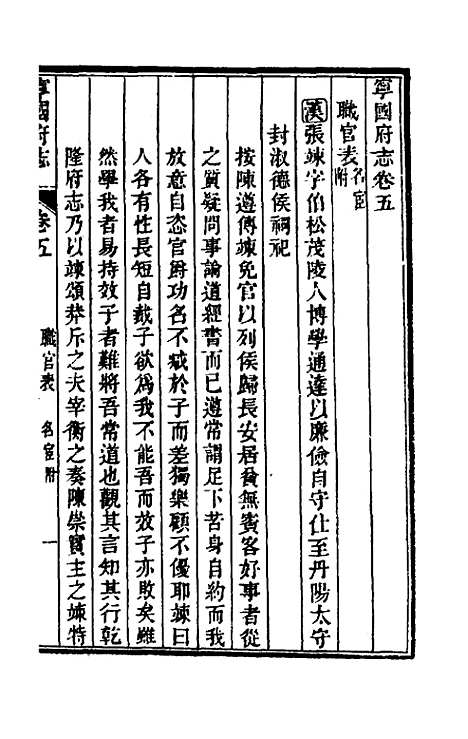 寧國府志卷五
職官表名宦附
漢張竦字伯松茂陵人博學通達以廉儉自守仕至丹陽太守
封淑德侯祠祀
按陳遵傳竦免官以列侯歸長安居貧無賓客好事者從
之質疑問事論道經書而已遵常謂足下苦身自約而我
放意自恣官爵功名不减於子而差獨樂顧不優耶竦曰
人各有性長短自裁子欲為我不能吾而效子亦敗矣雖
然學我者易持效子者難將吾常道也觀其言知其行乾
隆府志乃以竦頌莽斥之夫宰衡之奏陳崇實主之竦特
寧國府志
卷五
職官表 名宦附
一